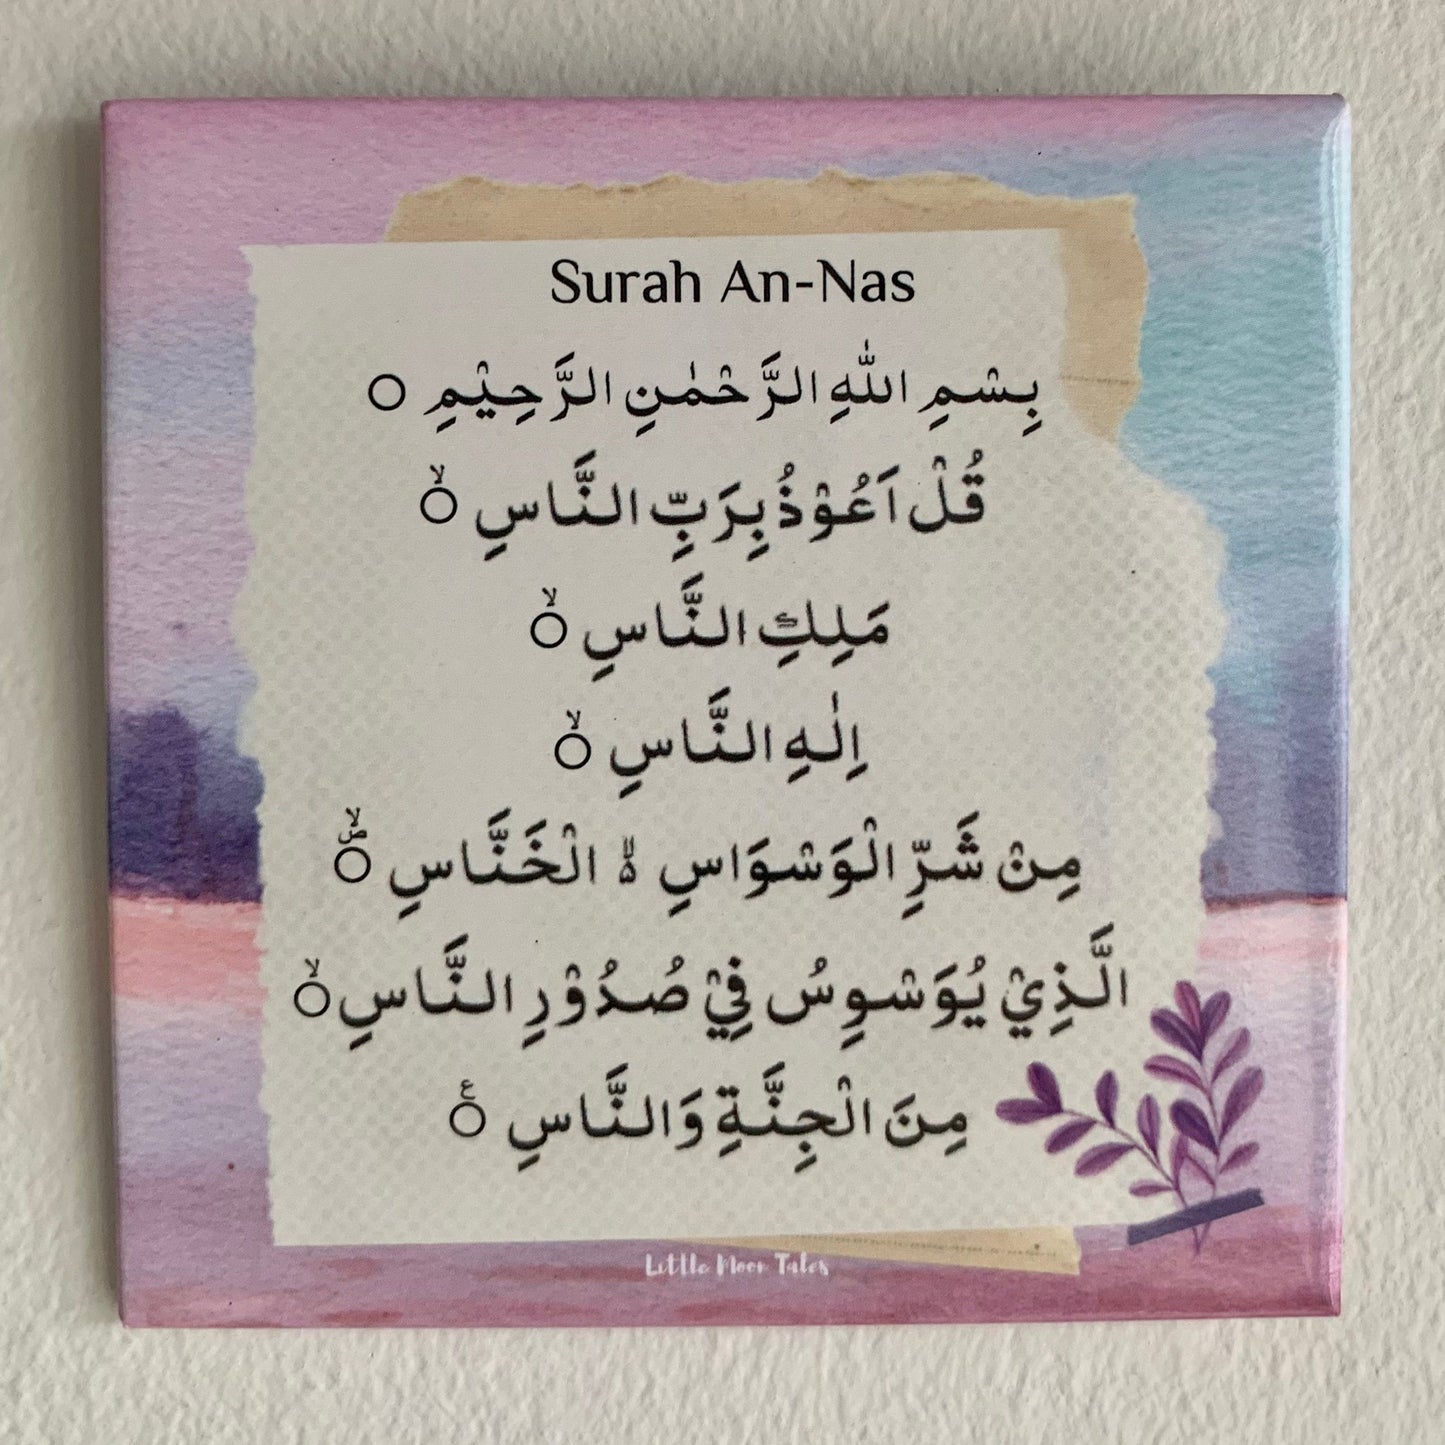 Surah An-Nas
بِسْمِ اللّٰهِ الرَّحْمٰنِ الرَّحِيْمِ ○
قُلْ اَعُوْذُ بِرَبِّ النَّاسِ ۙ○
مَلِكِ النَّاسِ ۙ○
اِلٰهِ النَّاسِ ۙ○
مِنْ شَرِّ الْوَسْوَاسِ ەۙ الْخَنَّاسِ ۖۙ○
الَّذِيْ يُوَسْوِسُ فِيْ صُدُوْرِ النَّاسِ ۙ○
مِنَ الْجِنَّةِ وَالنَّاسِ ○ۧ
Little Moon Tales